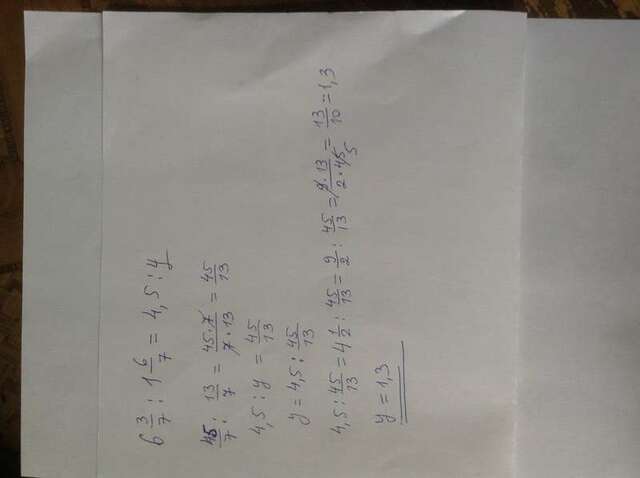 6 3/7 : 1 6/7 = 4,5 : y
45/7 : 13/7 = 45·7/7·13 = 45/13
4,5 : y = 45/13
y = 4,5 : 45/13
4,5 : 45/13 = 4 1/2 : 45/13 = 9/2 : 45/13 = 9·13/2·45 5 = 13/10 = 1,3
y = 1,3